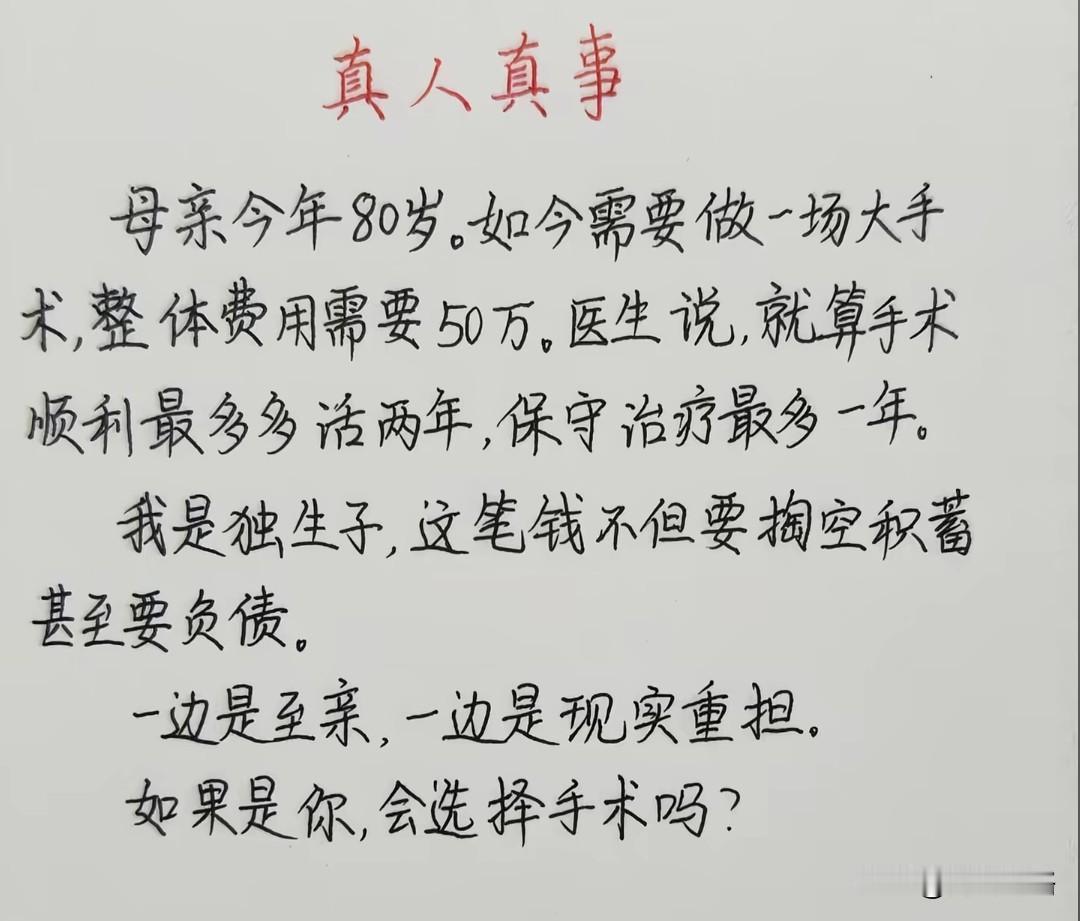 真人真事
母亲今年80岁。如今需要做一场大手
术,整体费用需要50万。医生说,就算手术
顺利最多多活两年,保守治疗最多一年。
我是独生子,这笔钱不但要掏空积蓄
甚至要负债。
一边是至亲,一边是现实重担。
如果是你,会选择手术吗?